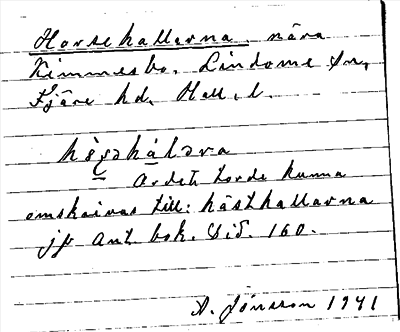 Horsekallarna, nära
Kimmesbo, Lindome sn,
Fjäre hd, Hall. l.
hɔ̀ʂəkálɔra
Ordet torde kunna
omskrivas till: hästkallarna
jfr Ant. bok. Sid. 160.
A. Jonsson 1941